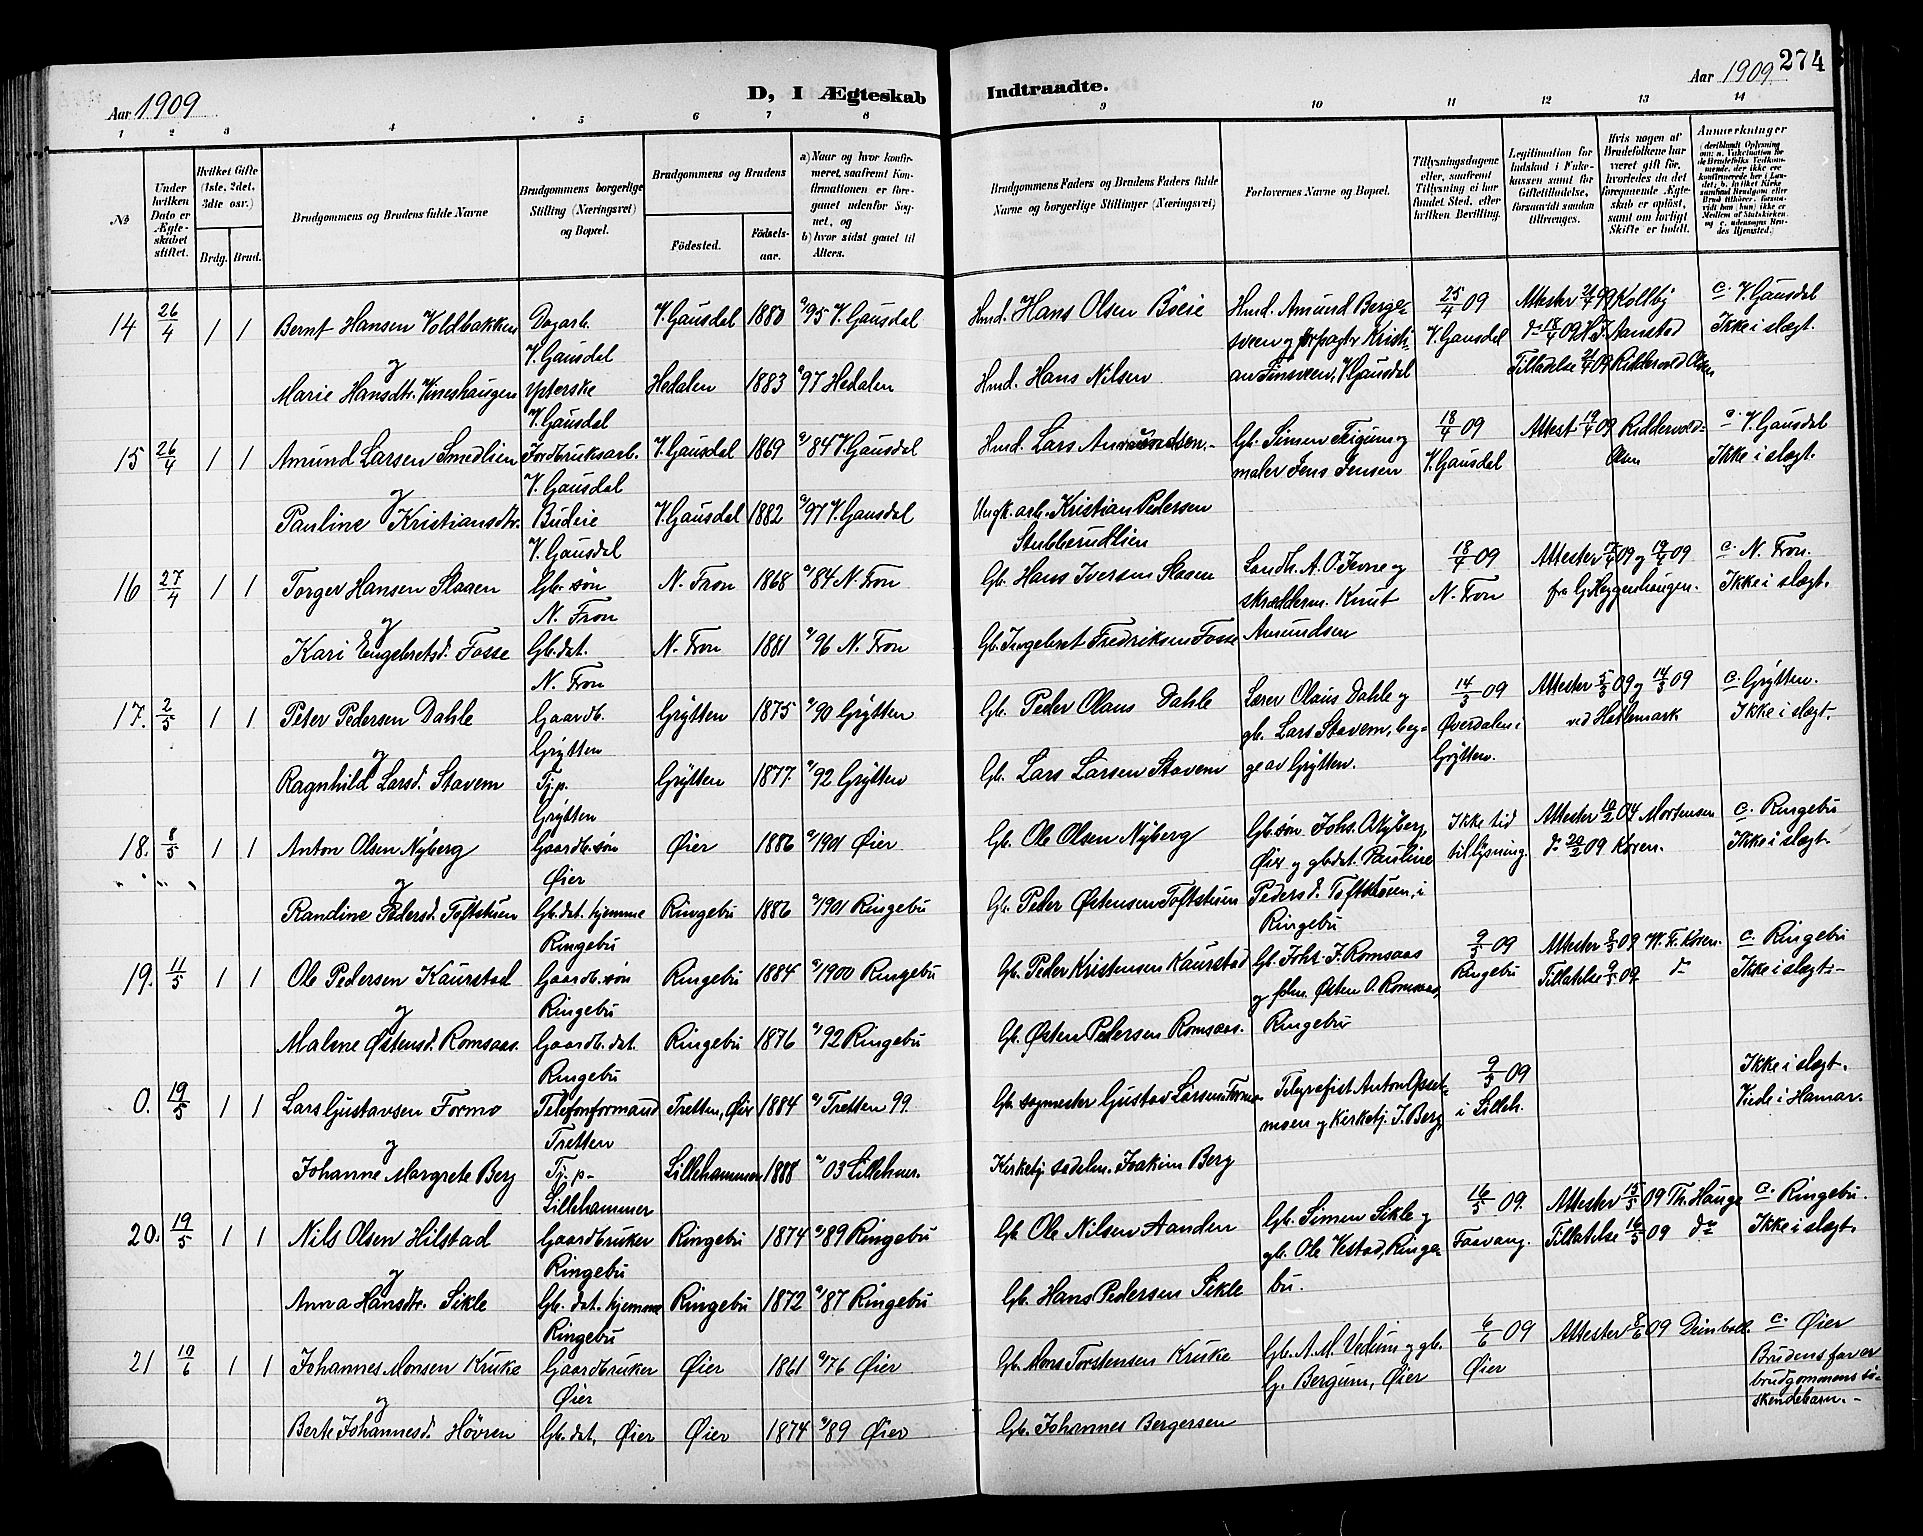 Aar 1909
D, I Ægteskab
Indtraadte.
Aar 1909
274
1 2 3 4 5 6 7 8 9 10 11 12 13 14
No
Under hvilken Dato er Ægteskabet stiftet.
Hvilket Gifte (1ste, 2det, 3die osv.)
Brdg. Brud.
Brudgommens og Brudens fulde Navne
Brudgommens borgerlige Stilling (Næringsvei) og Bopæl.
Brudgommens og Brudens
Födested.
Födselsaar.
a) Naar og hvor konfirmeret, saafremt Konfirmationen er foregaaet udenfor Sognet, og
b) hvor sidst gaaet til Alters.
Brudgommens Faders og Brudens Faders fulde Navne og borgerlige Stillinger (Næringsvei)
Forlovernes Navne og Bopæl.
Tillysningsdagene eller, saafremt Tillysning ei har fundet Sted, efter hvilken Bevilling.
Legitimation for Indskud i Enkekassen samt for Giftetilladelse, forsaavidt saadan tiltrænges.
Hvis nogen af Brudefolkene har været gift før, hvorledes da det foregaaende Ægteskab er opløst, samt om lovligt Skifte er holdt.
Anmerkninger
14 26/4 1 1 Bernt Hansen Voldbakken Dagarb. V. Gausdal 1880 a/95 V. Gausdal Hmd. Hans Olsen Böeie Hmd. Amund Berge- 25/4 09 Attester 26/4 09 Kollby c. V. Gausdal
V. Gausdal sveen og forpagter Kristi- V. Gausdal do 18/4 09 H.J. Aanstad Ikke i slægt.
og
Marie Hansdtr. Vineshaugen Ypterske Hedalen 1883 a/97 Hedalen Hmd. Hans Nilsen an Finsveen, V. Gausdal Tilladelse 26/4 09 Riddervold Olsen
V. Gausdal
15 26/4 1 1 Amund Larsen Smedlien Jordbruksarb. V. Gausdal 1869 a/84 V. Gausdal Hmd. Lars Amundsen. Gb. Simen Frigum og 18/4 09 Attest 19/4 09 Riddervold- c. V. Gausdal
V. Gausdal maler Jens Jensen V. Gausdal Olsen Ikke i slægt.
og
Pauline Kristiansdtr. Budeie V. Gausdal 1882 a/97 V. Gausdal Ungk. arb. Kristian Pedersen
V. Gausdal Stubberudlien
16 27/4 1 1 Torger Hansen Slaaen Gb. søn N. Fron 1868 a/84 N. Fron Gb. Hans Iversen Slaaen Landh. A. O. Jevne og 18/4 09 Attester 17/4 09 og 19/4 09 c. N. Fron.
N. Fron skrædderm. Knut N. Fron fra G. Heggenhaugen. Ikke i slægt.
og
Kari Engebretsd. Fosse Gb. dat. N. Fron 1881 a/96 N. Fron Gb. Ingebret Fredriksen Fosse Amundsen
N. Fron
17. 2/5 1 1 Peter Pedersen Dahle Gaardb. Grytten 1875 a/90 Grytten Gb. Peder Olaus Dahle Lærer Olaus Dahle og 14/3 09 Attester 5/3 09 og 14/3 09 c. Grytten.
Grytten gb. Lars Stavem, beg- Øverdalen i ved Hatlemark Ikke i slægt.
og
Ragnhild Larsd. Stavem Tj.p. Grytten 1877 a/92 Grytten Gb. Lars Larsen Stavem ge av Grytten. Grytten.
Grytten
18. 8/5 1 1 Anton Olsen Nyberg Gaardb. søn Øier 1886 a/1901 Øier Gb. Ole Olsen Nyberg Gb. søn Johs. O. Nyberg, Ikke tid Attester 10/2 04 Mortensen c. Ringebu
Øier Øier og gb. dat. Pauline til lysning. do 20/2 09 Koren. Ikke i slægt.
og
Randine Pedersd. Toftstuen Gb. dat. hjemme Ringebu 1886 a/1901 Ringebu Gb. Peder Østensen Toftstuen Pedersd. Toftstuen, i
Ringebu Ringebu
19. 11/5 1 1 Ole Pedersen Kaurstad Gaardb. søn Ringebu 1884 a/1900 Ringebu Gb. Peder Kristensen Kaurstad Gb. Johs. J. Romsaas 9/5 09 Attester 8/5 09 W. Fr. Koren. c. Ringebu
Ringebu og Østen O. Romsaas, Ringebu Tillatelse 9/5 09 do Ikke i slægt.-
og
Malene Østensd. Romsaas. Gaardb. dat. Ringebu 1876 a/92 Ringebu Gb. Østen Pedersen Romsaas. Ringebu
Ringebu
0. 19/5 1 1 Lars Gustavsen Formo Telefonformand Tretten, Øier 1884 a/Tretten 99. Gb. sogmester Gustav Larsen Formo Telegrafist Anton Opset- 9/5 09 Ikke i slægt.
Tretten moen og Kirketj. J. Berg, i Lilleh. Viede i Hamar.
og
Johanne Margrete Berg Tj.p.- Lillehammer 1888 a/03 Lillehmer. Kirketj. sadelm. Joakim Berg
Lillehammer
20. 19/5 1 1 Nils Olsen Hilstad Gaardbruker Ringebu 1874 a/89 Ringebu Gb. Ole Nilsen Aanden Gb. Simen Sikle og 16/5 09. Attester 15/5 09 Th. Hauge c. Ringebu.
Ringebu gb. Ole Vestad, Ringe- Faavang. Tillatelse 16/5 09 do Ikke i slægt.
og
Anna Hansdtr. Sikle Gb. dat. hjemme Ringebu 1872 a/87 Ringebu Gb. Hans Pedersen Sikle bu.
Ringebu
21 10/6 1 1 Johannes Monsen Kruke Gaardbruker Øier 1861 a/76 Øier Gb. Mons Torstensen Kruke Gb. A. M. Vedum og gb. 6/6 09 Attester 8/6 09 Deinboll. c. Øier
Øier G. Bergum, Øier Øier Brudens far er
og brudgommens sø-
Berte Johannesd. Hövren Gb. dat, Øier Øier 1874 a/89 Øier Gb. Johannes Bergersen skendebarn.-